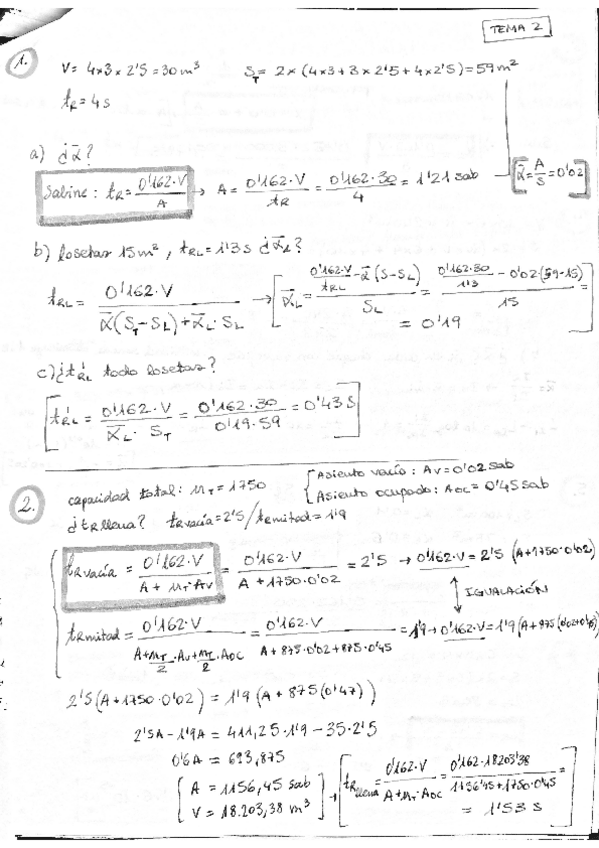 TEMA 2
1.
V = 4x3x2'5 = 30 m³
S_T = 2 x (4x3 + 3x2'5 + 4x2'5) = 59 m²
t_R = 4 s
a) ¿ᾱ?
Sabine: t_R = 0'162·V / A → A = 0'162·V / t_R = 0'162·30 / 4 = 1'21 sab → [ᾱ = A/S = 0'02]
b) losetar 15 m², t_RL = 1'3 s ¿ᾱ_L?
t_RL = 0'162·V / (ᾱ(S_T - S_L) + ᾱ_L·S_L) → [ᾱ_L = (0'162·V / t_RL - ᾱ(S - S_L)) / S_L = (0'162·30 / 1'3 - 0'02·(59-15)) / 15 =
= 0'19]
c) ¿t'_RL todo losetar?
[t'_RL = 0'162·V / (ᾱ_L·S_T) = 0'162·30 / (0'19·59) = 0'43 s]
2.
capacidad total: n_T = 1750 { Asiento vacío: Av = 0'02 sab
Asiento ocupado: Aoc = 0'45 sab
¿t_R llena? t_R vacía = 2'5 / t_R mitad = 1'9
t_R vacía = 0'162·V / (A + n_T·Av) = 0'162·V / (A + 1750·0'02) = 2'5 → 0'162·V = 2'5 (A+1750·0'02)
↕ IGUALACIÓN
t_R mitad = 0'162·V / (A + n_T/2·Av + n_T/2·Aoc) = 0'162·V / (A + 875·0'02 + 875·0'45) = 1'9 → 0'162·V = 1'9 (A + 875(0'02+0'45))
2'5(A + 1750·0'02) = 1'9 (A + 875(0'47))
2'5A - 1'9A = 411,25·1'9 - 35·2'5
0'6A = 693,875
{ A = 1156,45 sab
V = 18.203,38 m³ } → [t_R llena = 0'162·V / (A + n_T·Aoc) = 0'162·18203'38 / (1156'45 + 1750·0'45) =
= 1'53 s]